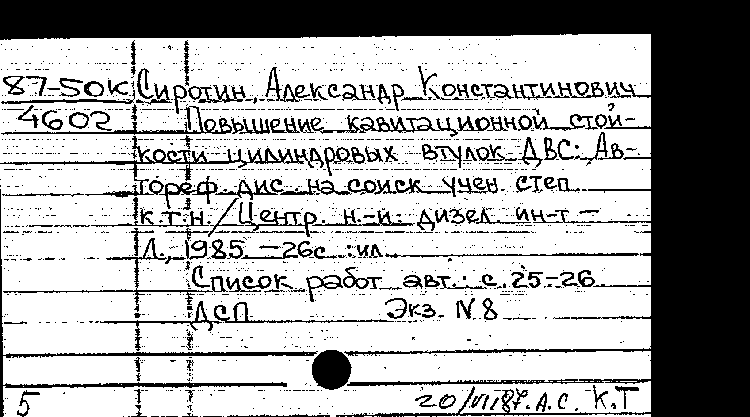 87-50К Сиротин, Александр Константинович
4602 Повышение кавитационной стой-
кости цилиндровых втулок ДВС: Ав-
тореф. дис. на соиск. учен. степ.
к.т.н. / Центр. н.-и. дизел. ин-т —
Л., 1985. — 26с. : ил.
Список работ авт.: с. 25-26.
ДСП Экз. N 8
5 20/VI 87. А.С. К.Т